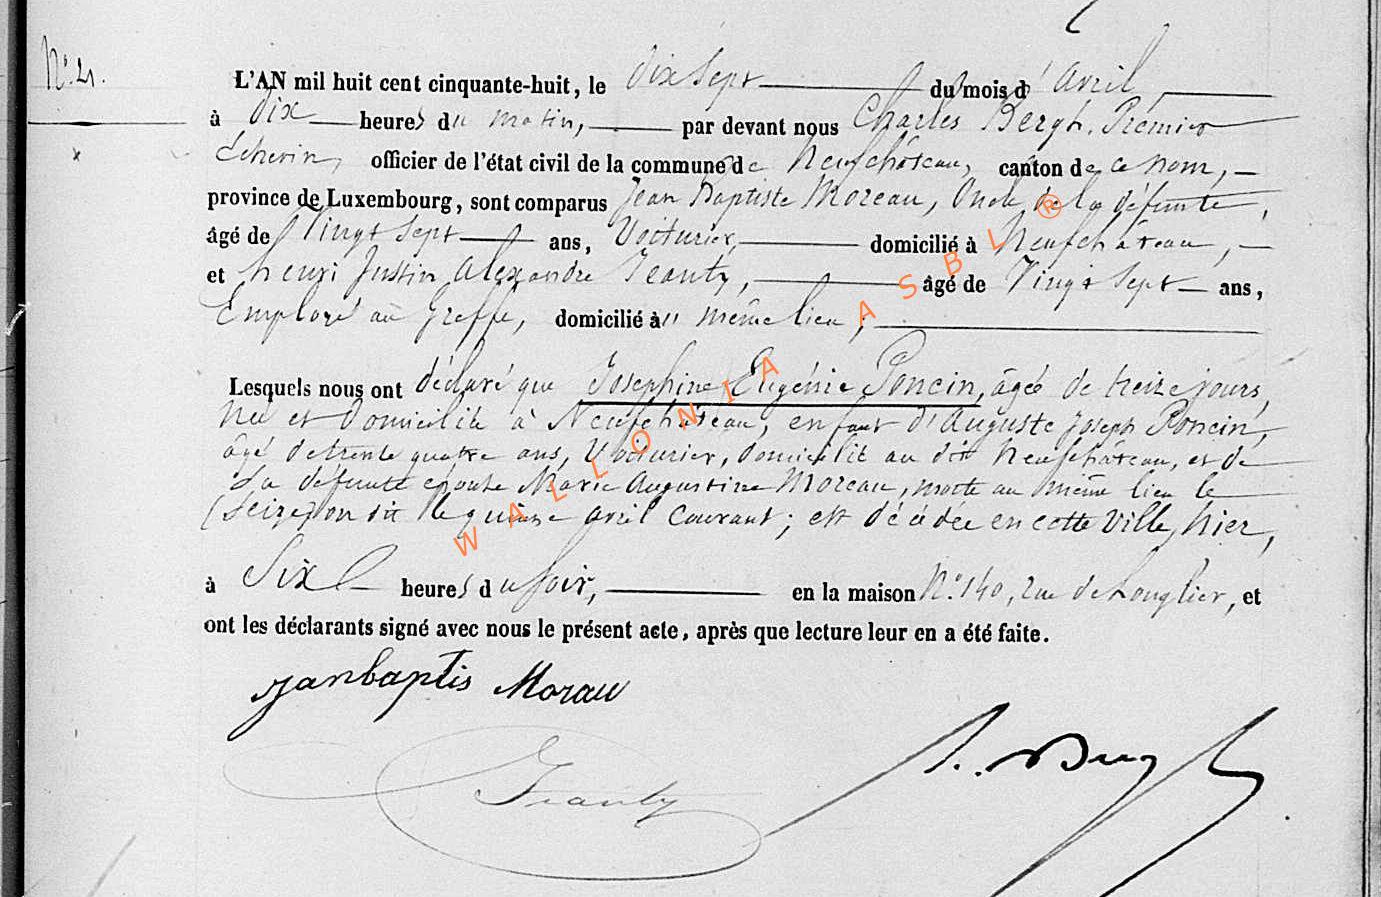 N° 21.
L'AN mil huit cent cinquante-huit, le dix sept du mois d'Avril,
à dix heures du matin, par devant nous Charles Bergh, Premier
Echevin, officier de l'état civil de la commune de Neufchâteau, canton de ce nom,
province de Luxembourg, sont comparus Jean Baptiste Moreau, Oncle de la défunte,
âgé de Vingt sept ans, Voiturier, domicilié à Neufchâteau,
et henri Justin Alexandre Jeanty, âgé de Vingt sept ans,
Employé au Greffe, domicilié au même lieu;
Lesquels nous ont déclaré que Josephine Eugénie Poncin, âgée de treize jours,
Née et Domiciliée à Neufchâteau, enfant d'Auguste Joseph Poncin,
âgé de trente quatre ans, Voiturier, domicilié au dit Neufchâteau, et de
La défunte épouse Marie Augustine Moreau, morte au même lieu le
(Seize) on dit le quinze avril Courant; est décédée en cette Ville, hier,
à Six heures du soir, en la maison N° 140, rue de Longlier, et
ont les déclarants signé avec nous le présent acte, après que lecture leur en a été faite.
Janbaptis Morau
Jeanty
Bergh
WALLONIA ASBL ®